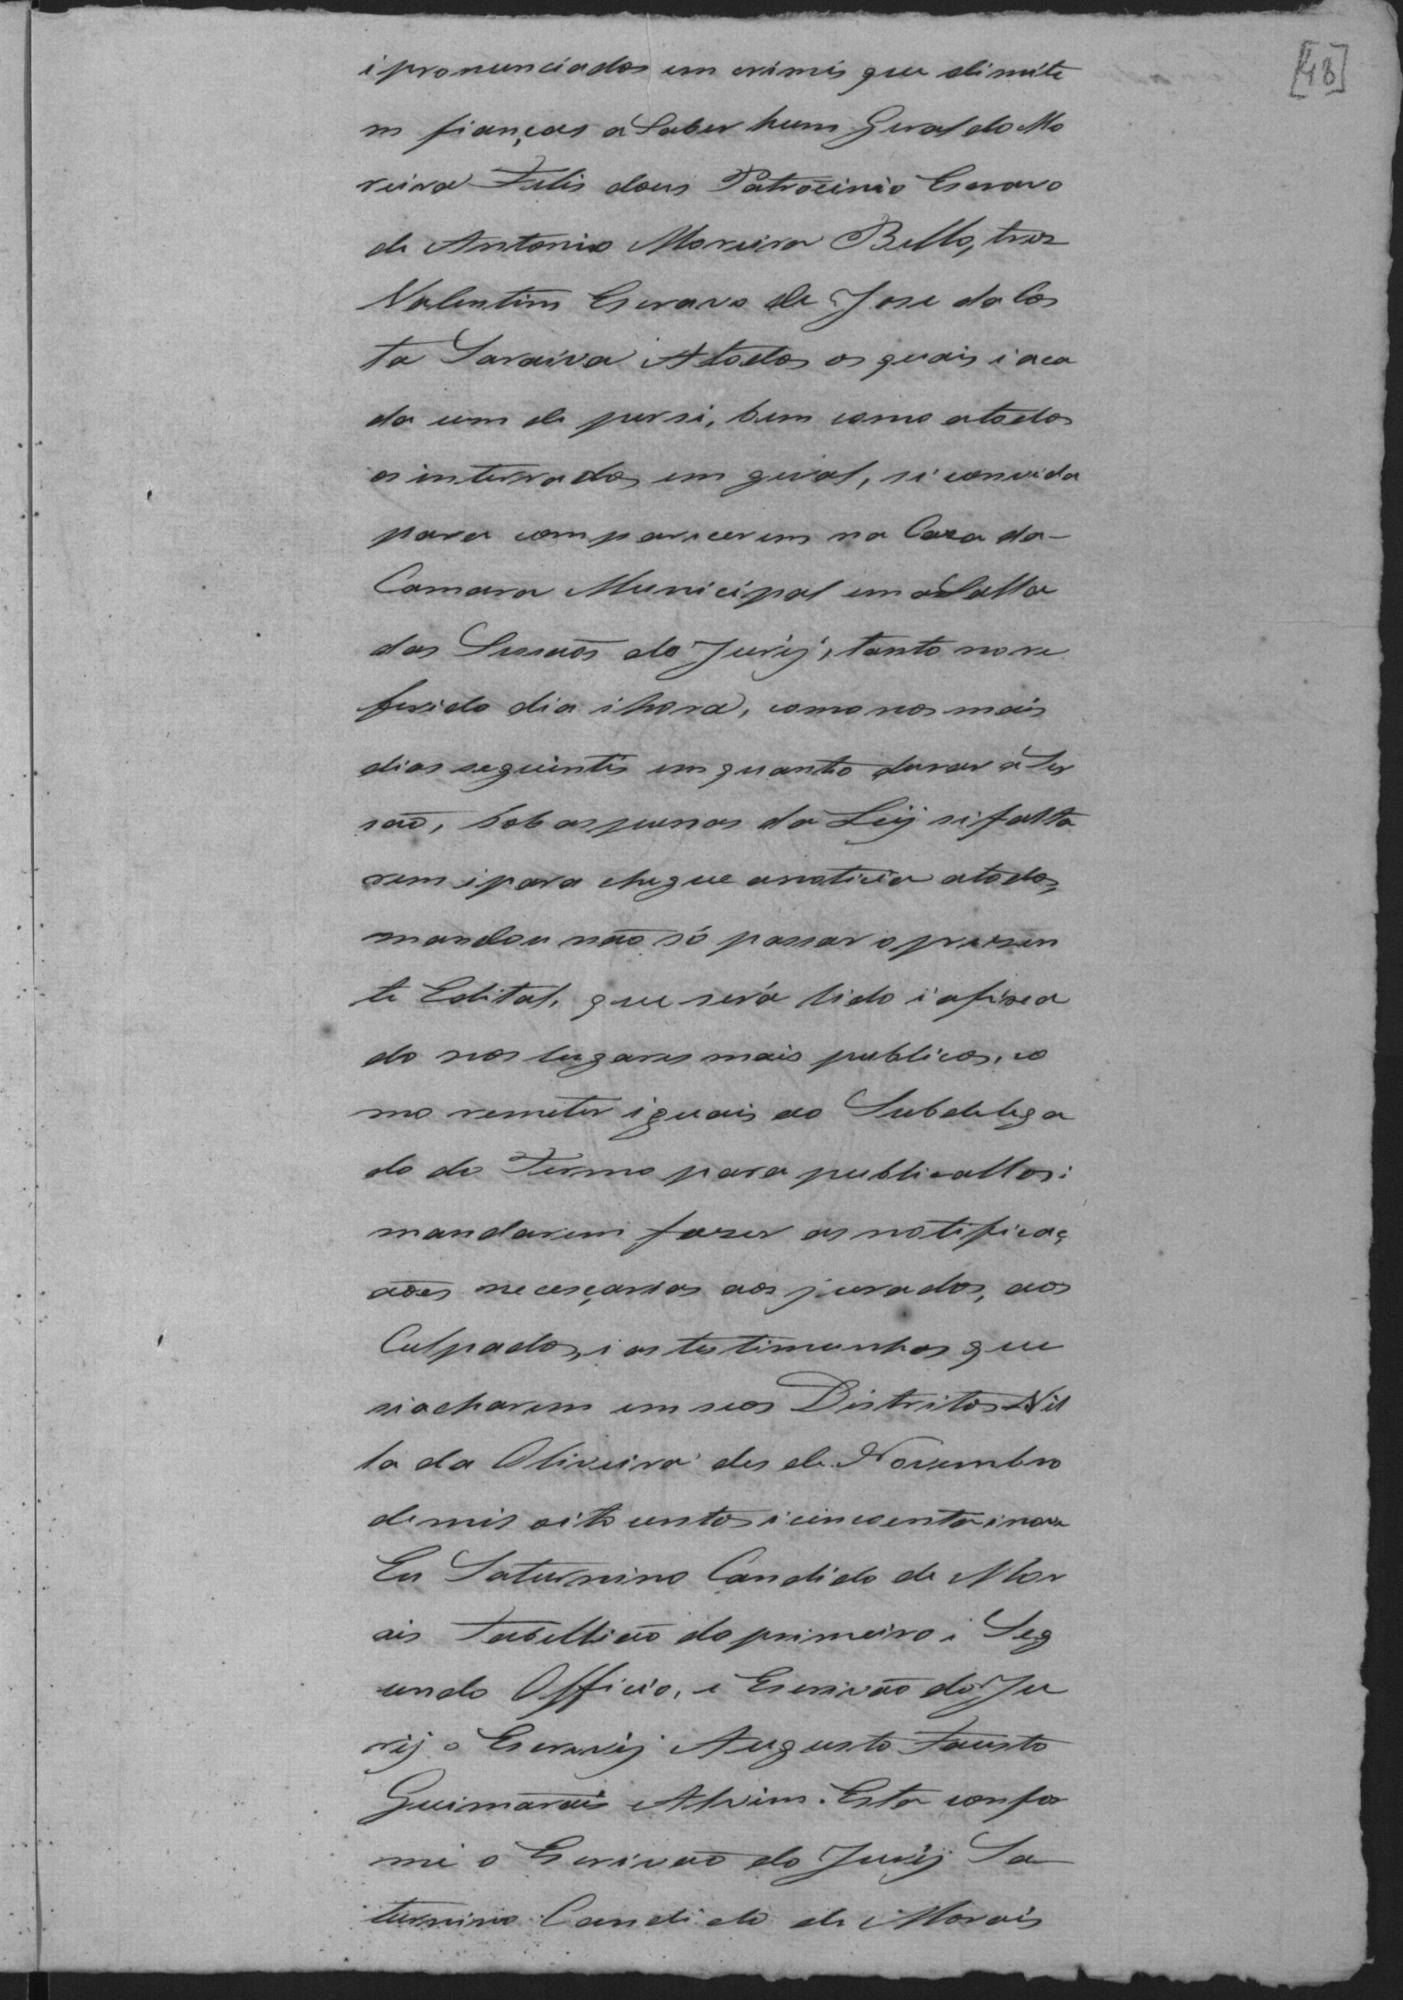 [48]
i pronunciados em crimes que dimite
m fianças a Saber hum Geraldo Mo
reira Felis dous Patrocinio Escravo
de Antonio Moreira Bello, tres
Valentim Escravo de Jose da Cos
ta Saraiva Atodos os quais i aca
da um de persi, bem como atodos
os interrados em geral, si convida
para comparecerem na Caza da-
Camara Municipal em a Salla
das Sessaõs do Jurij, tanto no re
ferido dia i hora, como nos mais
dias seguintis em quanto durar a Ses
saõ, sob as penas da Leij si falta
rem i para chegue a noticia atodos,
mandou naõ só passar o prezen
te Edital, que será lido i afixa
do nos lugares mais publicos, co
mo remeter iguais ao Subdelega
do do Termo para publicallos i
mandarem fazer as notificaç
aões necesçarias aos jurados, aos
Culpados, i as testimunhas que
si acharem em seos Distritos Vil
la da Oliveira des de Novembro
de mis oito centos i cincoenta i nove
Eu Saturnino Candido de Mor
ais Tabelliaõ do primeiro i Seg
undo Officio, e Escrivaõ do Ju
rij o Escrevij Augusto Fausto
Guimarais Alvim. Esta confor
me o Escrivaõ do Jurij Sa
turnino Candido de Morais